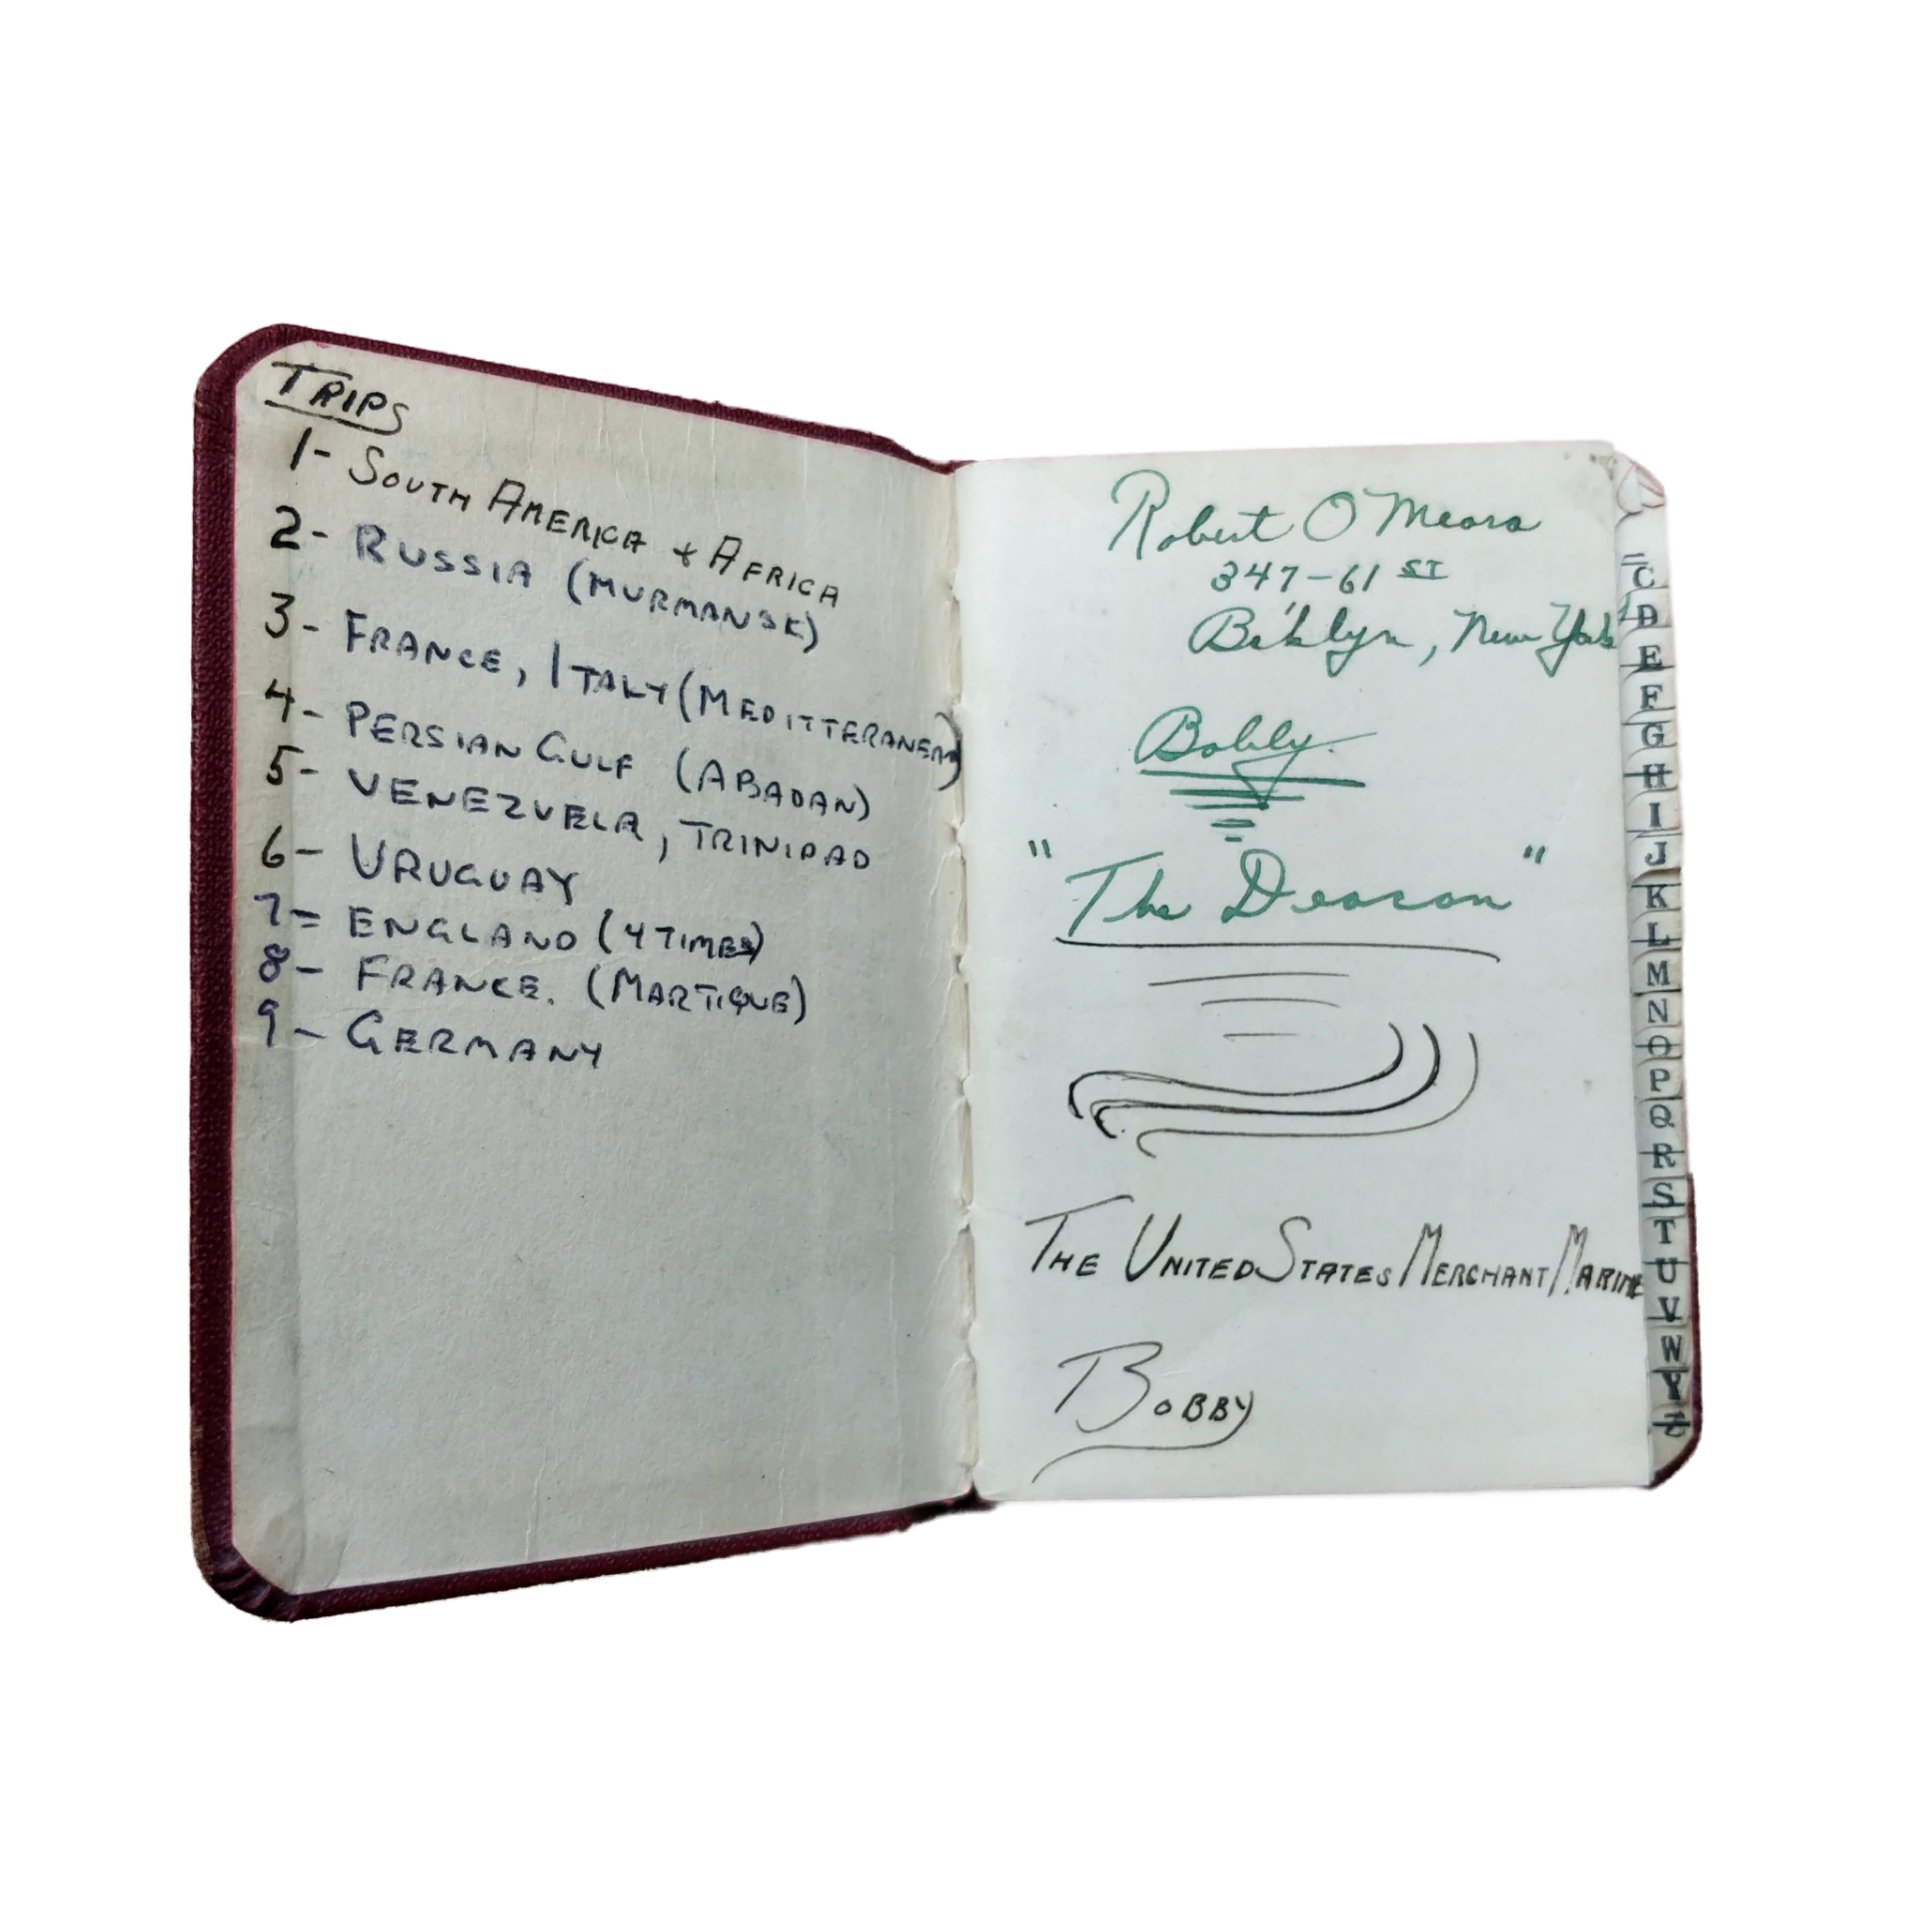 TRIPS
1- SOUTH AMERICA & AFRICA
2- RUSSIA (MURMANSK)
3- FRANCE, ITALY (MEDITTERANEAN)
4- PERSIAN GULF (ABADAN)
5- VENEZUELA, TRINIDAD
6- URUGUAY
7= ENGLAND (4 TIMES)
8- FRANCE. (MARTIQUE)
9- GERMANY
Robert O'Meara
347-61 ST
B'klyn, New York
Bobby.
"The Deacon"
THE UNITED STATES MERCHANT MARINE
BOBBY
C
D
E
F
G
H
I
J
K
L
M
N
O
P
Q
R
S
T
U
V
W
Y
Z